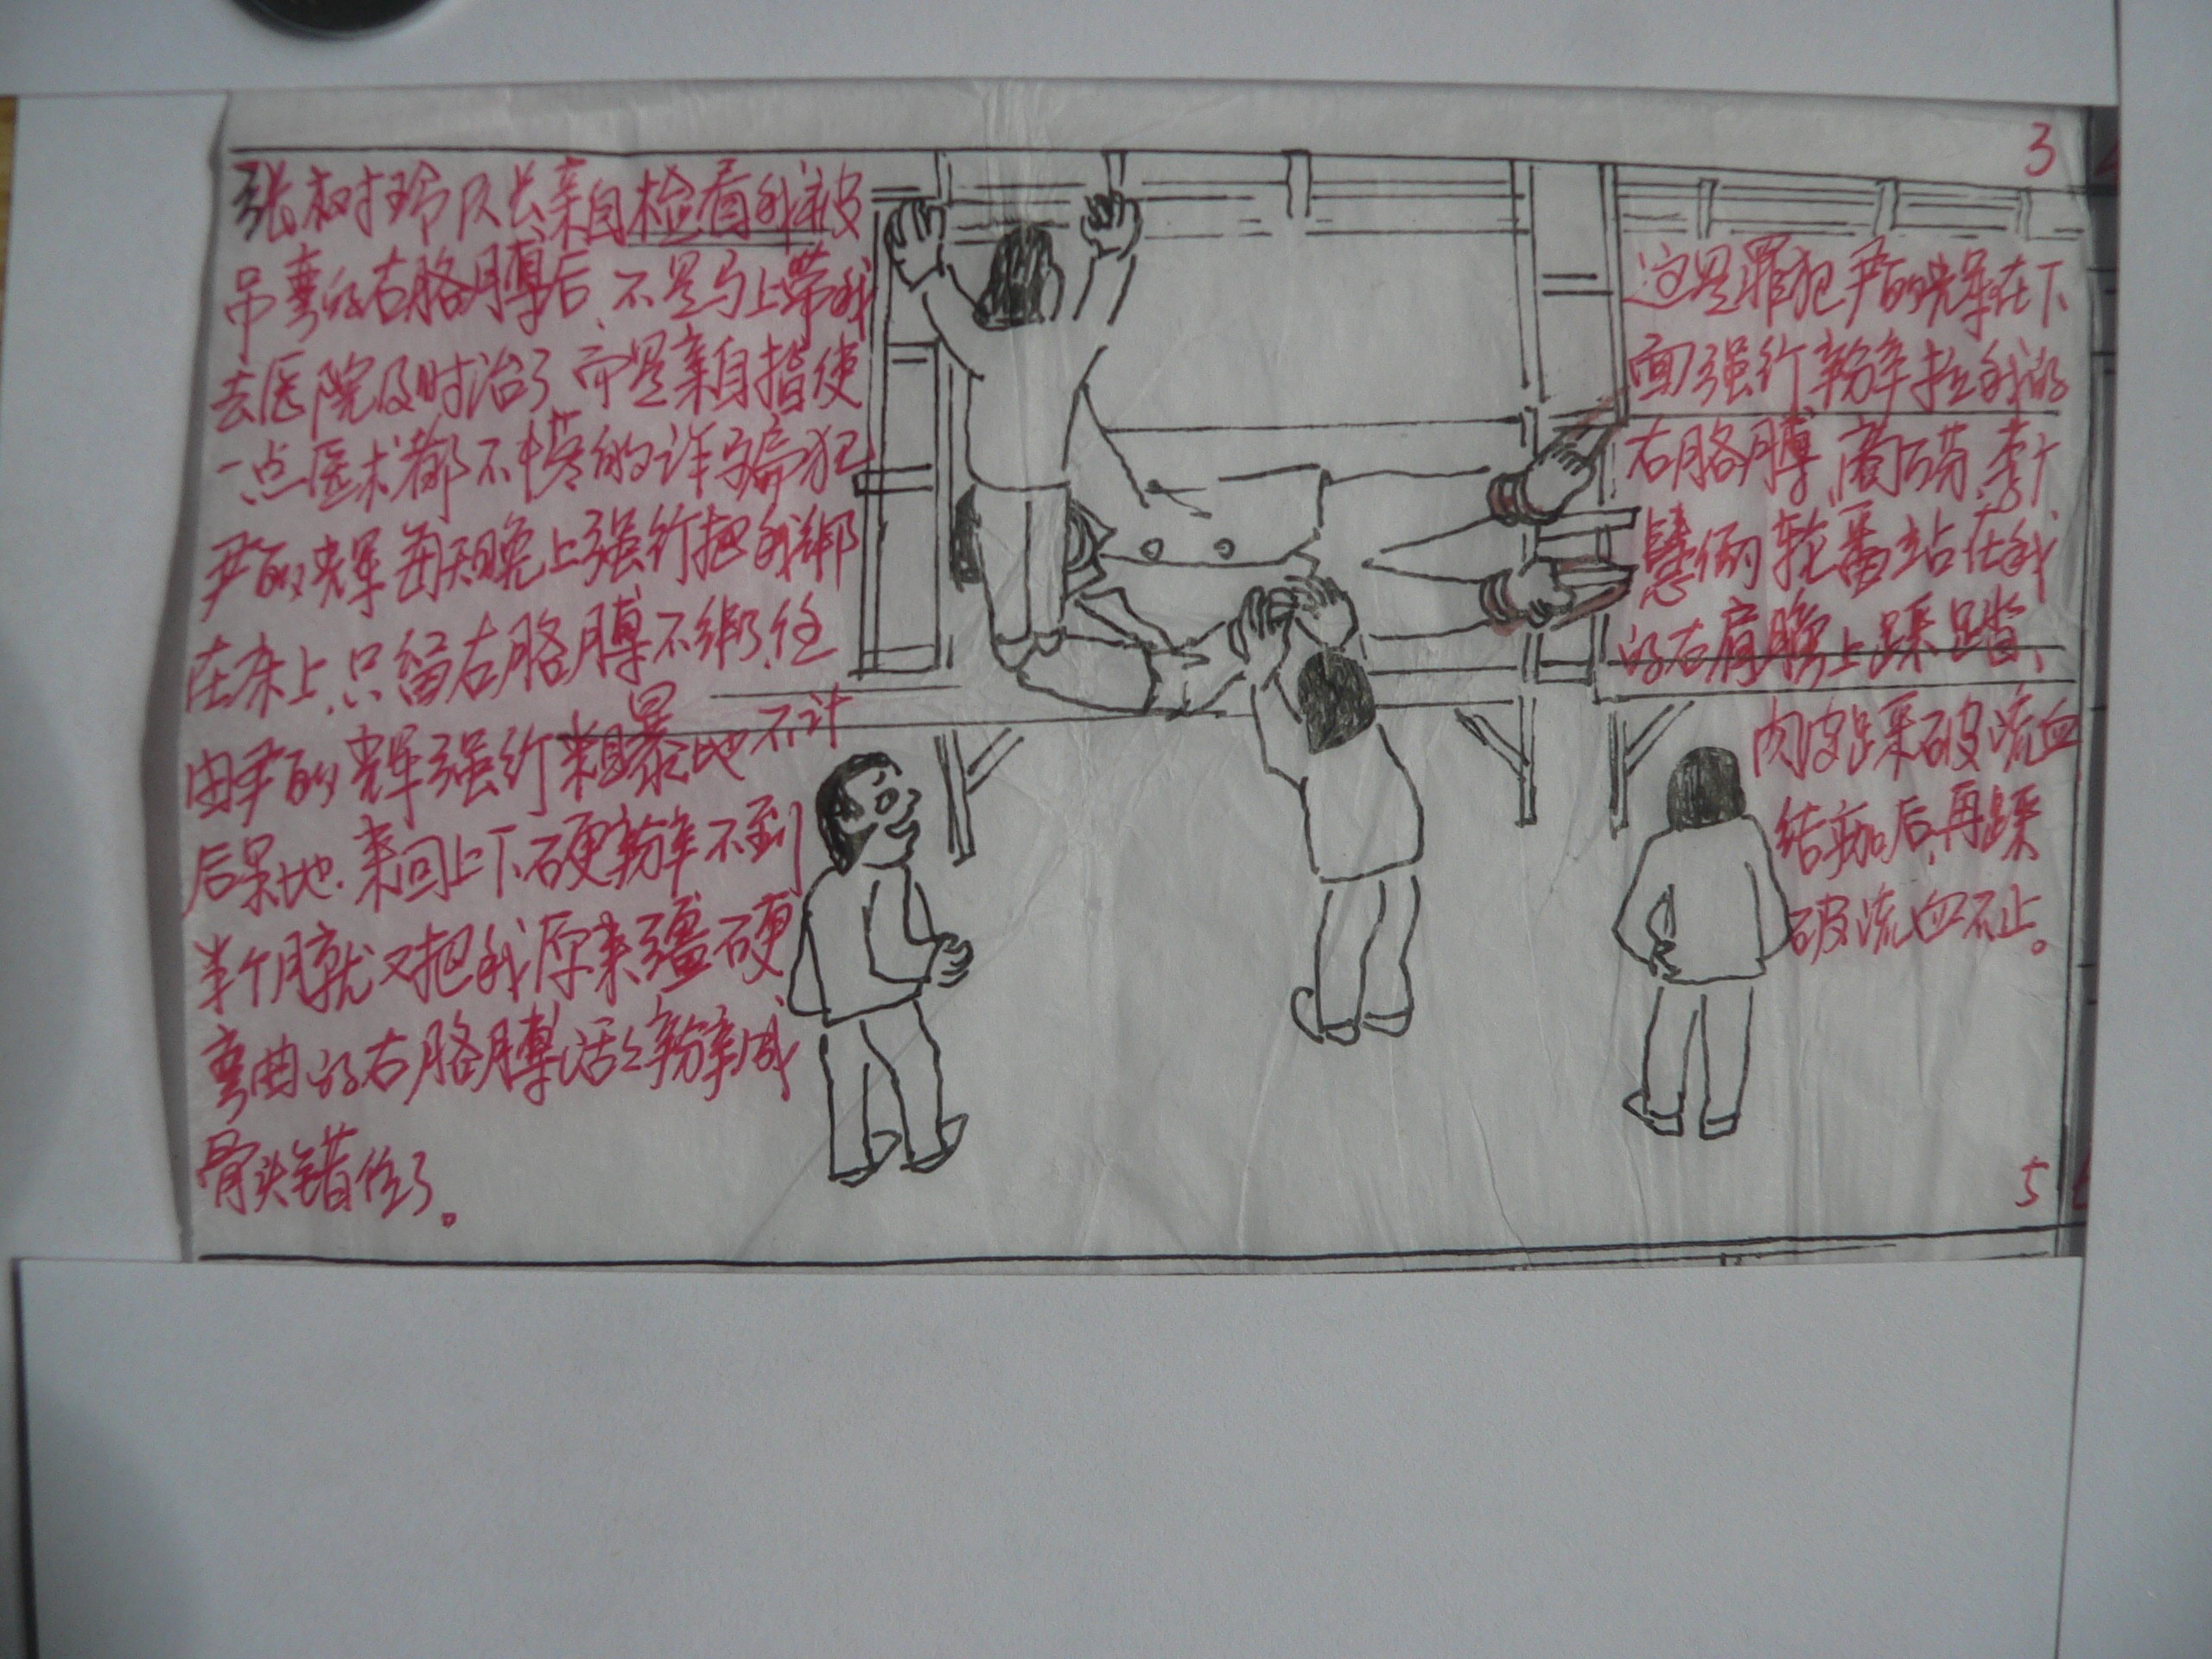 3
张树玲队长亲自检看我被
吊弯的右胳膊后、不是马上带我
去医院及时治了而是亲自指使
一点医术都不懂的诈骗犯
尹的辉每天晚上强行把我绑
在床上、只留右胳膊不绑、任
由尹的辉强行粗暴地不计
后果地、来回上下硬掰不到
半个月就又把我原来强硬
弯曲的右胳膊活活掰成
骨头错位了。
这是罪犯尹的辉在下
面强行掰拉我的
右胳膊、
俩轮番站在我
的右肩膀上踩踏、
肉皮踩破流血
结痂后、再踩
破流血不止。
5